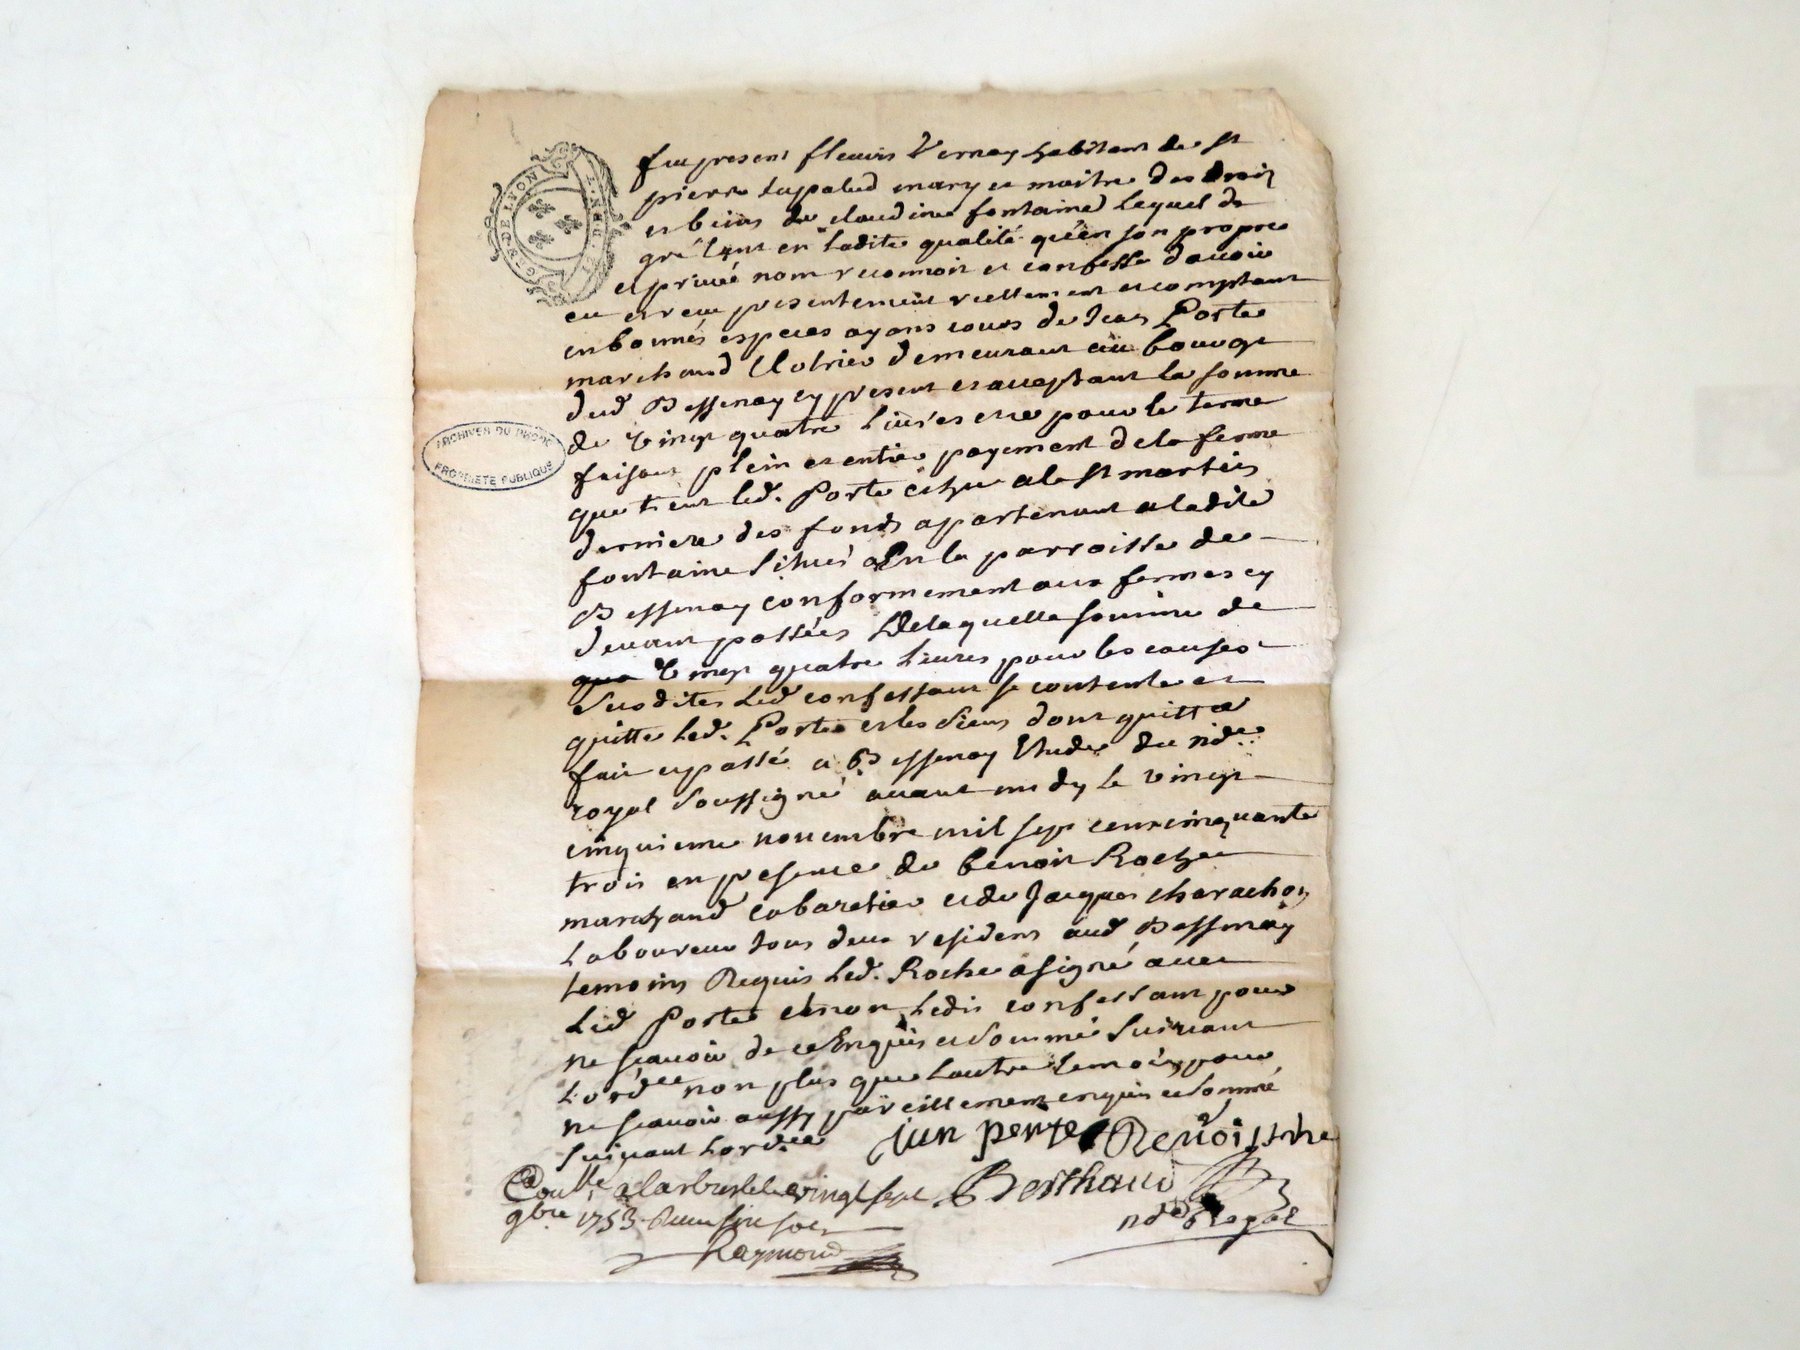 fut present fleuris Vernay habitant de St
pierre lapalud mary et maitre des drois
et biens de claudine fontaine Lequel de
gré tant en ladite qualité qu'en son propre
et privé nom reconnoit et confesse d'avoir
eu et reçu presentement reellement et comptant
en bonnes especes ayans cours de Jean Porte
marchand demeurant au bourg
dud Bessenay cy present et acceptant la somme
de vingt quatre Livres et ce pour le terme
faisant plein et entier payement de la ferme
que tient led. Porte echue a la St martin
derniere des fonds apartenant a ladite
fontaine situés En la parroisse de
Bessenay conformement aux fermes cy
devant passées De laquelle somme de
vingt quatre Livres pour les causes
susdites Led confessant se contente et
quitte Led. Porte et les siens dont quittce
fait et passé a Bessenay Etude du nore
royal soussigné avant midy le vingt
cinquieme novembre mil sept cent cinquante
trois en presence de benoit Roche
marchand cabaretier et de Jacques charachon
Laboureur tous deux residens aud Bessenay
temoins Requis Led. Roche a signé avec
Led Porte et non Ledit confessant pour
ne scavoir de ce Enquis et sommé suivant
Lordce non plus que Lautre temoin pour
ne scavoir aussy pareillement enquis et sommé
suivant Lordce
jan porte Benoit roche
Coullé a Larbresle le vingt sept Berthaud
9bre 1753 Reçu six sols nore Royal
Raymond
GEN DE LYON
ARCHIVES DU
PROPRIETE PUBLIQUE